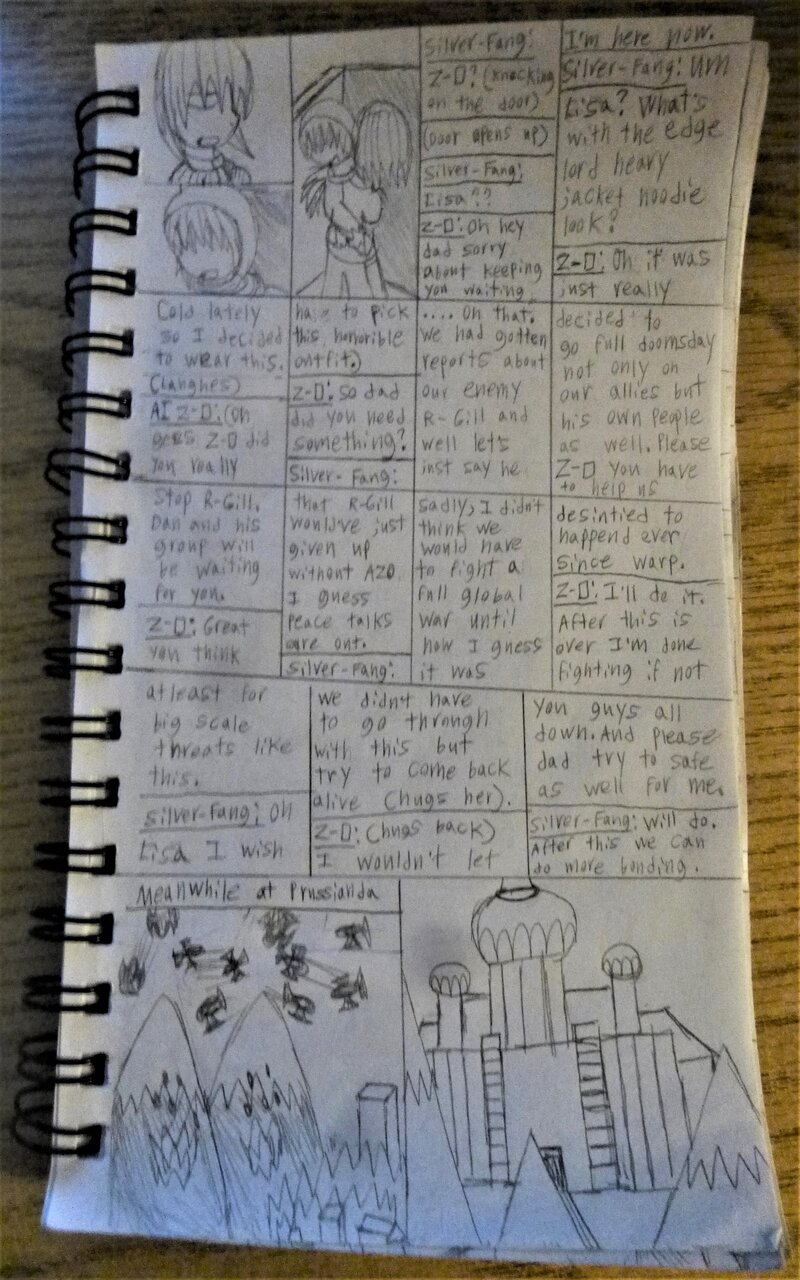 Silver-Fang:
Z-O? (knacking
on the door)
(Door opens up)
Silver-Fang:
Lisa??
Z-O: Oh hey
dad sorry
about keeping
you waiting
I'm here now.
Silver-Fang: Um
Lisa? What's
with the edge
lord heavy
jacket hoodie
look?
Z-O: Oh it was
just really
Cold lately
so I decided
to wear this.
(Langhes)
AI Z-O: (Oh
gees Z-O did
you really
have to pick
this honorible
outfit.)
Z-O: so dad
did you need
something?
Silver-Fang:
.... Oh that.
we had gotten
reports about
our enemy
R-Gill and
well lets
just say he
decided to
go full doomsday
not only on
our allies but
his own people
as well. Please
Z-O you have
to help us
Stop R-Gill.
Dan and his
group will
be waiting
for you.
Z-O: Great
you think
that R-Gill
would've just
given up
without AZO
I guess
peace talks
are out.
Silver-Fang:
sadly, I didn't
think we
would have
to fight a
full global
war until
now I guess
it was
desintied to
happend ever
since warp.
Z-O: I'll do it.
After this is
over I'm done
fighting if not
atleast for
big scale
threats like
this.
Silver-Fang: Oh
Lisa I wish
we didn't have
to go through
with this but
try to come back
alive (hugs her).
Z-O: (hugs back)
I wouldn't let
you guys all
down. And please
dad try to safe
as well for me.
Silver-Fang: Will do.
After this we can
do more bonding.
Meanwhile at Prussianda